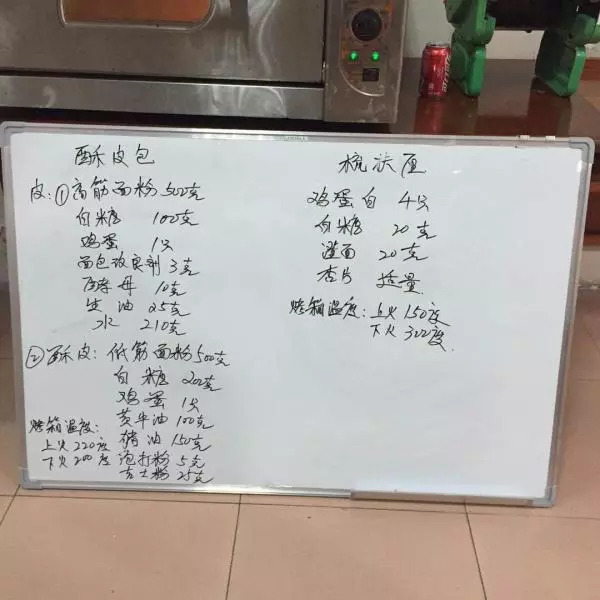 酥皮包
皮:①高筋面粉 500克
白糖 100克
鸡蛋 1只
面包改良剂 3克
酵母 10克
生油 25克
水 210克
②酥皮:低筋面粉 500克
白糖 200克
鸡蛋 1只
黄牛油 100克
猪油 150克
泡打粉 5克
吉士粉 25克
烤箱温度:
上火 220度
下火 200度
梳夫厘
鸡蛋白 4只
白糖 20克
20克
杏片 适量
烤箱温度:上火 150度
下火 300度.